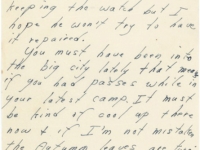 keeping the watch but I
hope he won't try to have
it repaired.
You must have been into
the big city lately that means
if you had passes while in
your latest camp. It must
be kind of cool up there
now & if I'm not mistaken
the Autumn leaves are